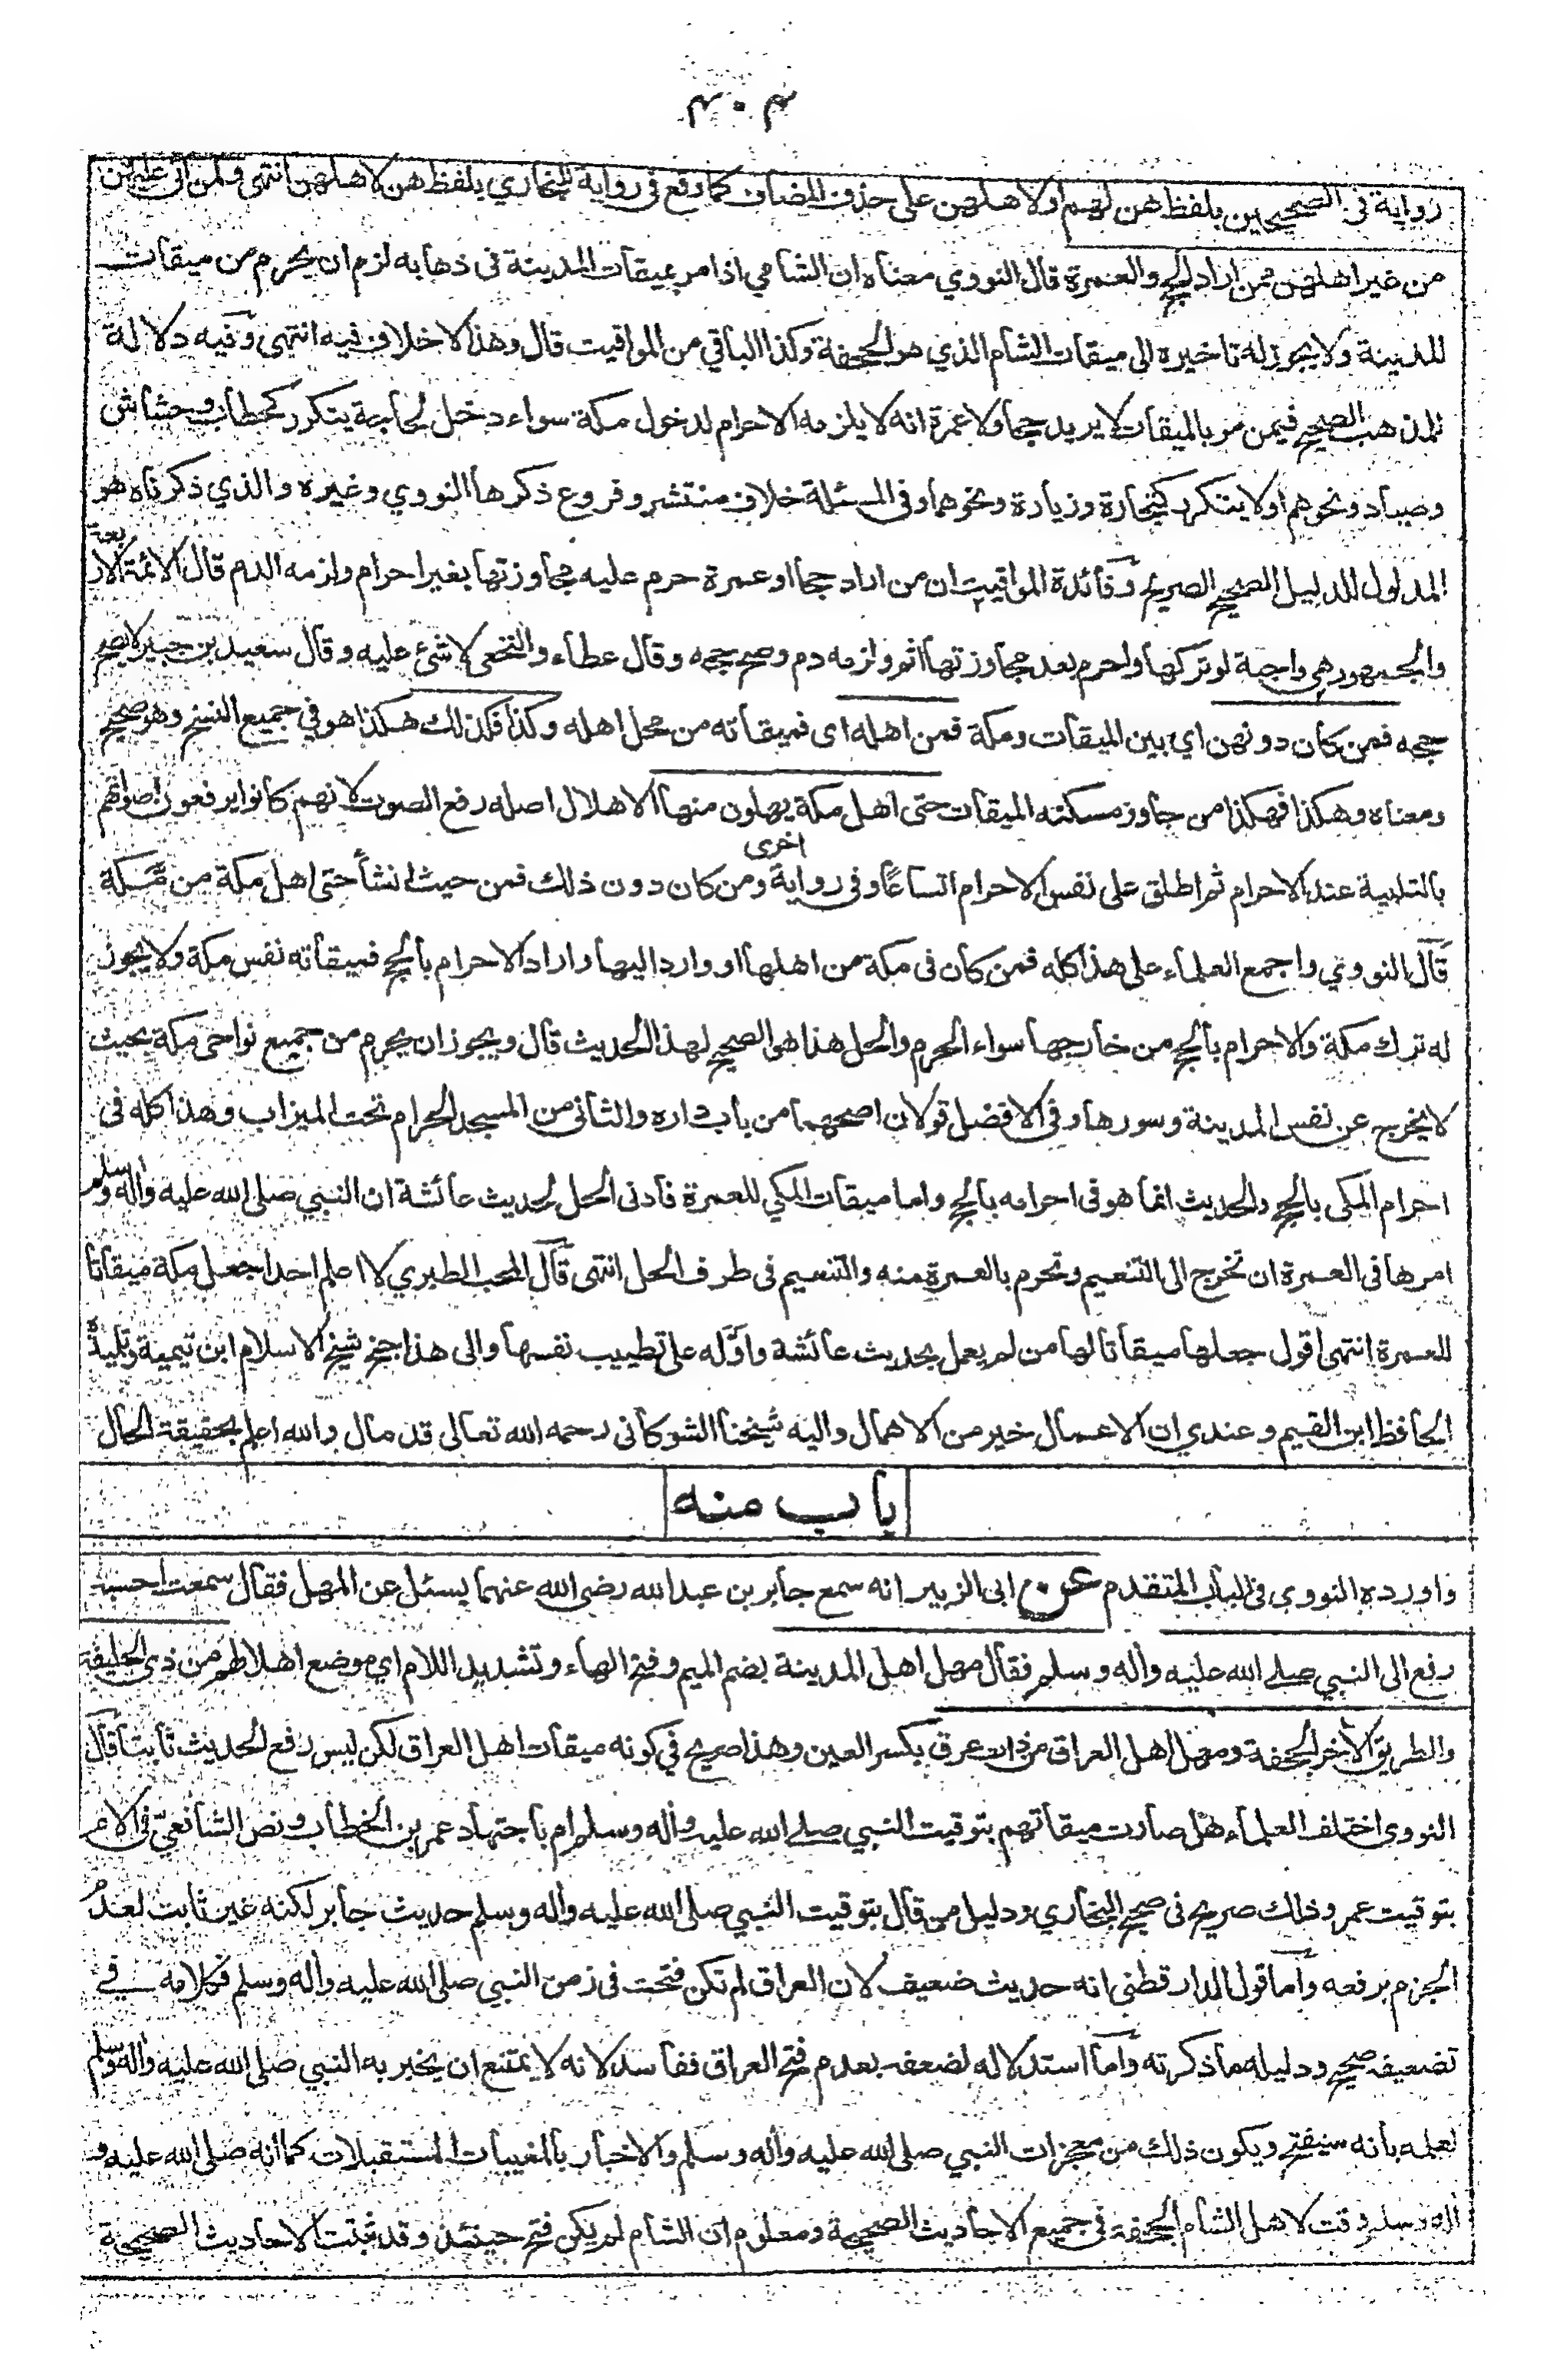 ٣٠٤
رواية في الصحيحين بلفظ هن لهم او لاهلهن على حذف المضاف كما وقع في رواية للبخاري بلفظ هن لاهلهن انتهى ولمن اتى عليهن
من غير اهلهن ممن اراد الحج والعمرة قال النووي معناه ان الشامي اذا مر بميقات المدينة في ذهابه لزم ان يحرم من ميقات
المدينة ولا يجوز له تاخيره الى ميقات الشام الذي هو الجحفة وكذا الباقي من المواقيت قال وهذا لا خلاف فيه انتهى وفيه دلالة
للمذهب الصحيح فيمن مر بالميقات لا يريد حجا ولا عمرة انه لا يلزمه الاحرام لدخول مكة سواء دخل لحاجة يتكرر كحطاب وحشاش
وصياد ونحوهم او لا يتكرر كتجارة وزيارة ونحوهما وفى المسئلة خلاف منتشر وفروع ذكرها النووي وغيره والذي ذكرناه هو
المدلول للدليل الصحيح الصريح وفائدة المواقيت ان من اراد حجا او عمرة حرم عليه مجاوزتها بغير احرام ولزمه الدم قال الائمة الاربعة
والجمهور هي واجبة لو تركها واحرم بعد مجاوزتها اثم ولزمه دم وصح حجه وقال عطاء والنخعى لا شئ عليه وقال سعيد بن جبير لا يصح
حجه فمن كان دونهن اي بين الميقات ومكة فمن اهله اى فميقاته من محل اهله وكذا فكذلك هكذا هو في جميع النسخ وهو صحيح
ومعناه وهكذا فهكذا من جاوز مسكنه الميقات حتى اهل مكة يهلون منها الاهلال اصله رفع الصوت لانهم كانوا يرفعون اصواتهم
بالتلبية عند الاحرام ثم اطلق على نفس الاحرام اتساعًا وفى رواية اخرى ومن كان دون ذلك فمن حيث انشأ حتى اهل مكة من مكة
قال النووي واجمع العلماء على هذا كله فمن كان فى مكة من اهلها او واردا اليها واراد الاحرام بالحج فميقاته نفس مكة ولا يجوز
له ترك مكة والاحرام بالحج من خارجها سواء الحرم والحل هذا هو الصحيح لهذا الحديث قال ويجوز ان يحرم من جميع نواحى مكة بحيث
لا يخرج عن نفس المدينة وسورها وفى الافضل قولان اصحهما من باب داره والثانى من المسجد الحرام تحت الميزاب وهذا كله فى
احرام المكى بالحج والحديث انما هو فى احرامه بالحج واما ميقات المكي للعمرة فادنى الحل لحديث عائشة ان النبي صلى الله عليه واله وسلم
امرها فى العمرة ان تخرج الى التنعيم وتحرم بالعمرة منه والتنعيم فى طرف الحل انتهى قال المحب الطبري لا اعلم احدا جعل مكة ميقاتا
للعمرة انتهى اقول جعلها ميقاتا لها من لم يعمل بحديث عائشة واوّله على تطييب نفسها والى هذا جنح شيخ الاسلام ابن تيمية وتلميذه
الحافظ ابن القيم وعندي ان الاعمال خير من الاهمال واليه شيخنا الشوكانى رحمه الله تعالى قد مال والله اعلم بحقيقة الحال
باب منه
واورده النووى فى الباب المتقدم عن ابى الزبير انه سمع جابر بن عبد الله رضى الله عنهما يسئل عن المهل فقال سمعت احسبه
رفع الى النبي صلى الله عليه واله وسلم فقال مهل اهل المدينة بضم الميم وفتح الهاء وتشديد اللام اي موضع اهلالهم من ذي الحليفة
والطريق الاخر الجحفة ومهل اهل العراق من ذات عرق بكسر العين وهذا صريح في كونه ميقات اهل العراق لكن ليس رفع الحديث ثابتا قال
النووى اختلف العلماء هل صارت ميقاتهم بتوقيت النبي صلى الله عليه واله وسلم ام باجتهاد عمر بن الخطاب ونص الشافعيّ فى الام
بتوقيت عمر وذلك صريح فى صحيح البخاري ودليل من قال بتوقيت النبي صلى الله عليه واله وسلم حديث جابر لكنه غير ثابت لعدم
الجزم برفعه واما قول الدارقطنى انه حديث ضعيف لان العراق لم تكن فتحت فى زمن النبي صلى الله عليه واله وسلم فكلامه في
تضعيفه صحيح ودليله ما ذكرته واما استدلاله لضعفه بعدم فتح العراق ففاسد لانه لا يمتنع ان يخبر به النبي صلى الله عليه واله وسلم
لعلمه بانه سيفتح ويكون ذلك من معجزات النبي صلى الله عليه واله وسلم والاخبار بالمغيبات المستقبلات كما انه صلى الله عليه و
اله وسلم وقت لاهل الشام الجحفة فى جميع الاحاديث الصحيحة ومعلوم ان الشام لم يكن فتح حينئذ وقد ثبتت الاحاديث الصحيحة